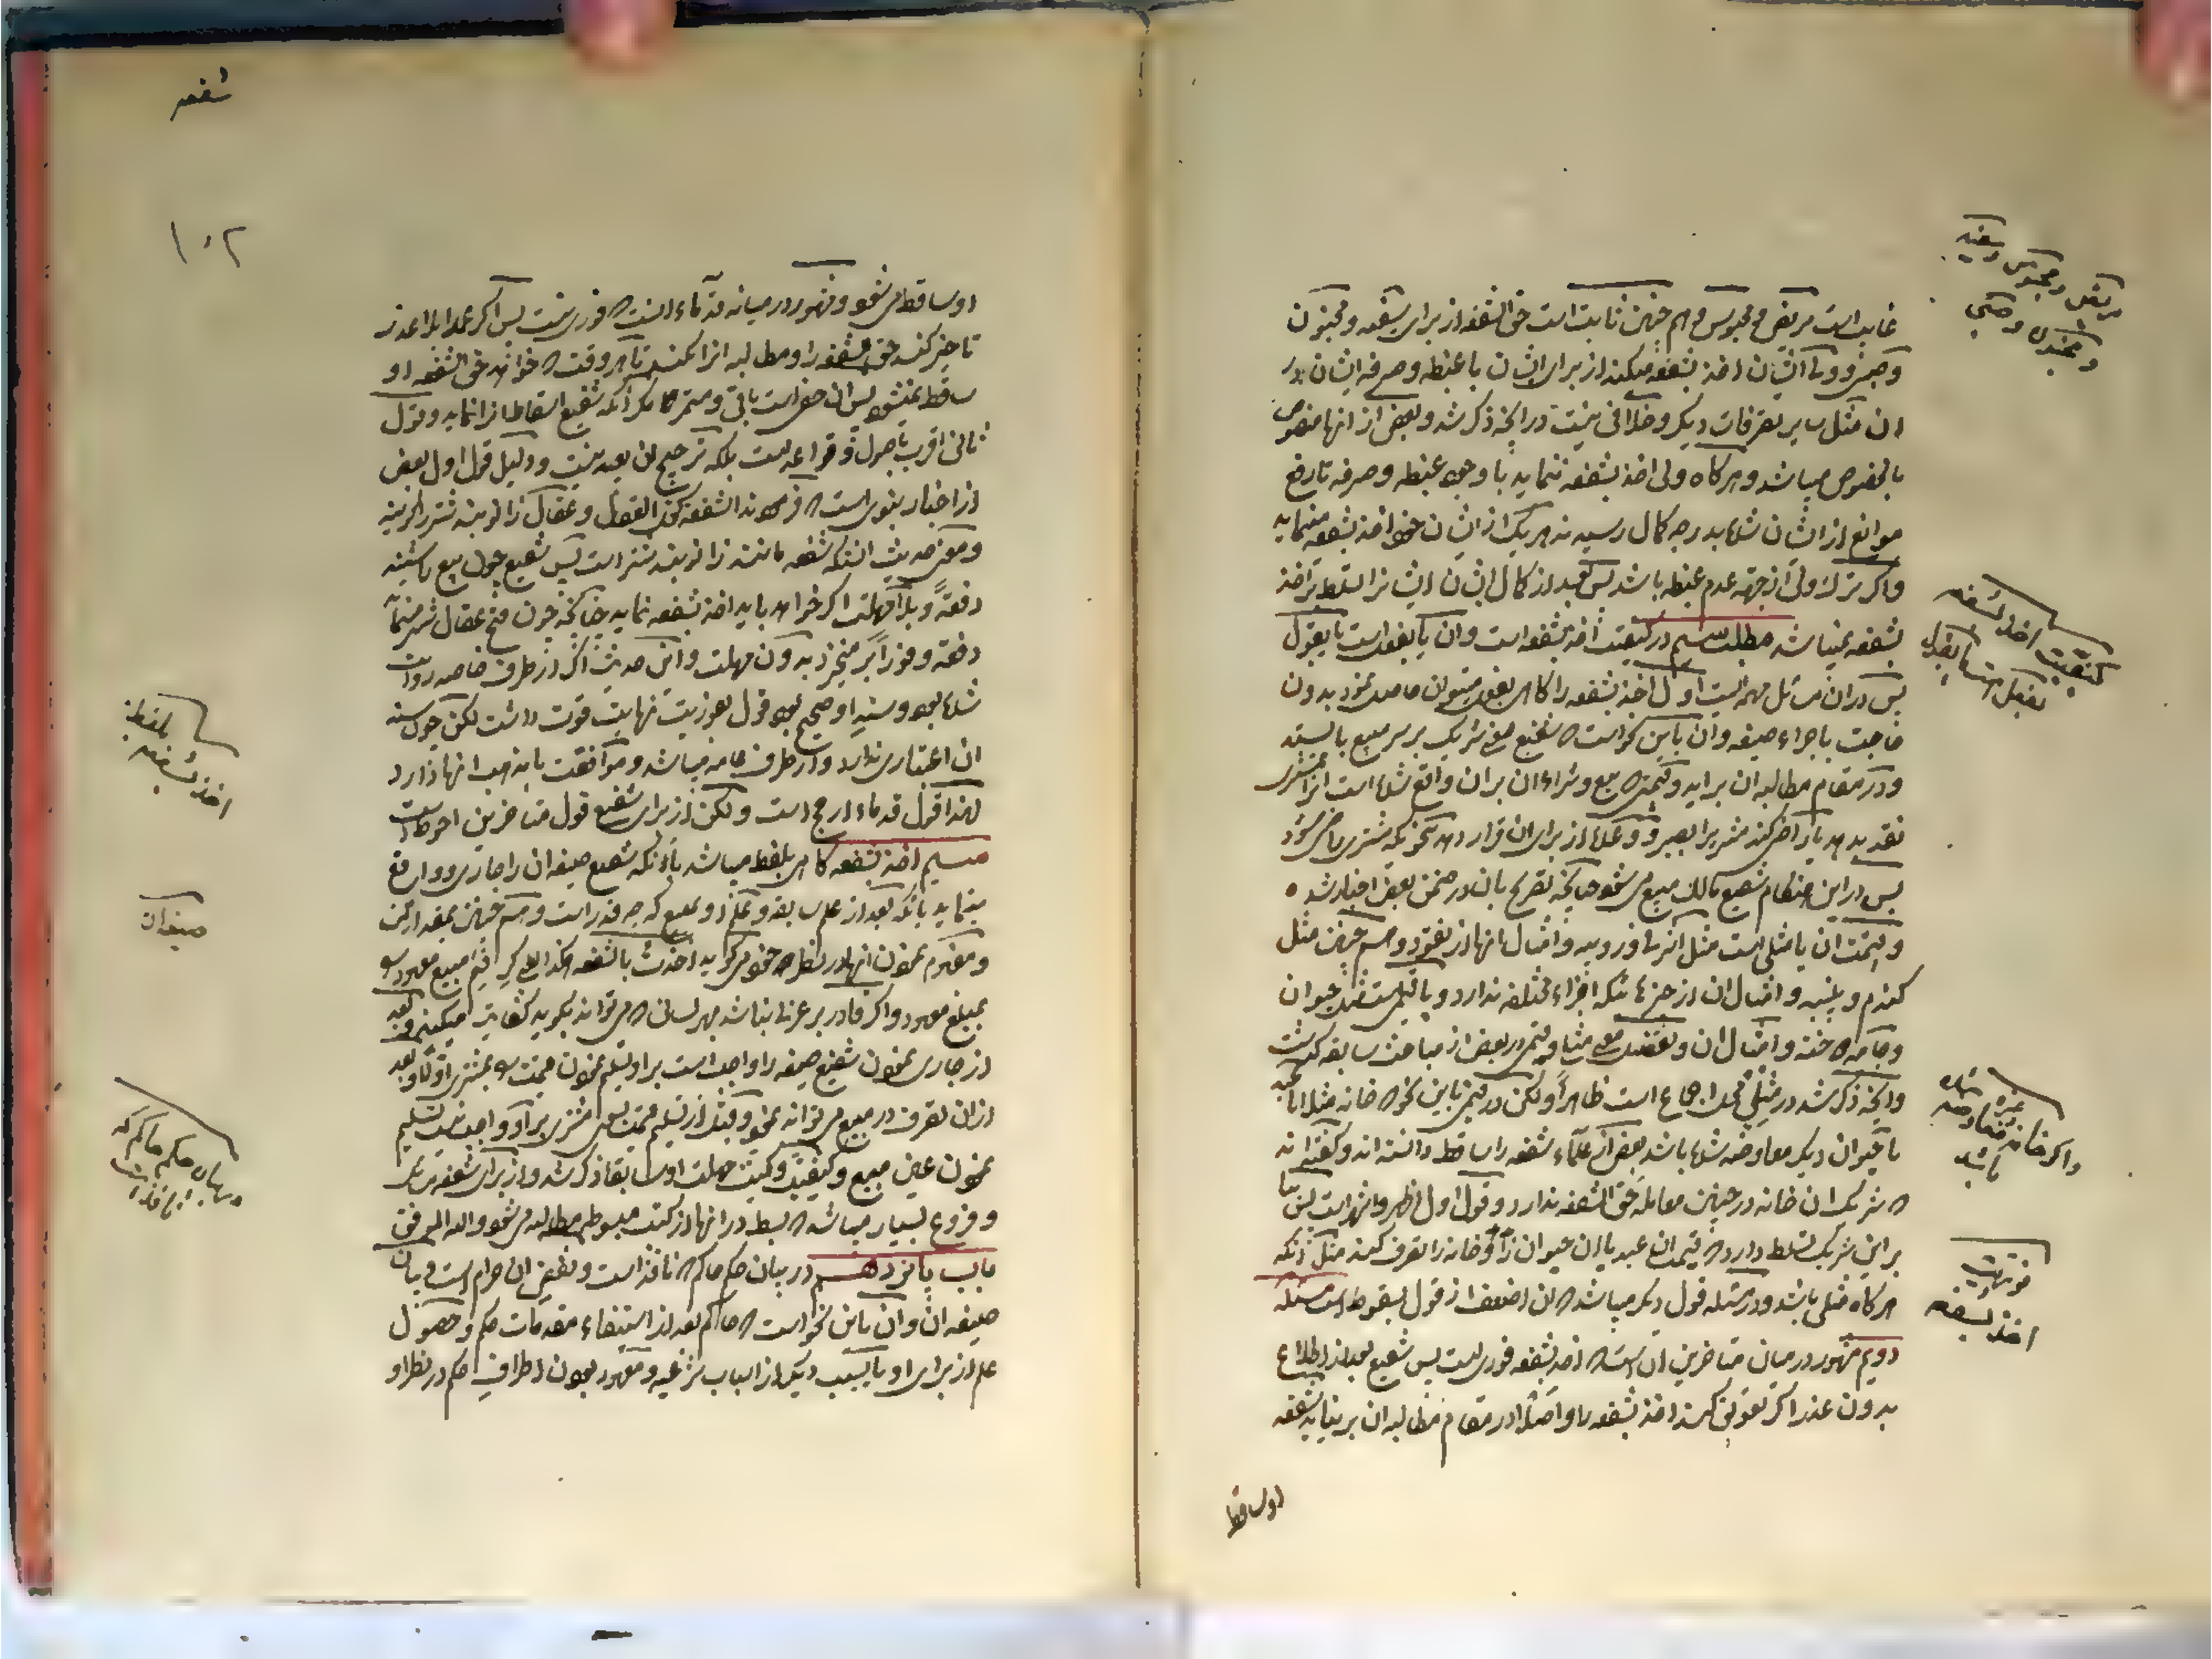 غایب است مریض و محبوس و هم چنین ثابت است حق الشفعه از برای سفیه و مجنون
و صبی و ولی ایشان اخذ بشفعه میکند از برای ایشان با غبطه و صرفه ایشان در
ان مثل سایر تصرفات دیگر و خلافی نیست در آنچه ذکر شد و بعض از انها منصوص
بالخصوص میباشد و هرگاه ولی اخذ بشفعه ننماید با وجود غبطه و صرفه تا رفع
موانع از ایشان شده بدرجه کمال رسیدند هر یک از ایشان خود اخذ بشفعه مینماید
و اگر ترک ولی از جهة عدم غبطه باشد پس بعد از کمال ایشان ایشانرا تسلط بر اخذ
بشفعه نمیباشد مطلب سیم در کیفیت اخذ بشفعه است و ان یا بفعل است یا بقول
پس در ان مسائل مهمه ایست اول اخذ بشفعه را گاهی بفعل میتوان حاصل نمود بدون
حاجت باجراء صیغه و ان باین نحو است که شفیع شریک بر سر مبیع بایستد
و در مقام مطالبه ان براید و قیمتی که بیع و شراء ان بران واقع شده است انرا بمشتری
نقد بدهد یا راضی کند مشتریرا بصبر و وعده از برای ان قرار دهد بنحویکه مشتری راضی شود
پس در این هنگام شفیع مالک مبیع میشود چنانچه تصریح بان در ضمن بعض اخبار شده
و قیمت ان یا مثلی است مثل اشرفی و روپیه و امثال انها از نقود و هم چنین مثل
گندم و پنبه و امثال ان از چیزهائیکه اجزاء مختلفه ندارد و یا قیمی است مثل حیوان
و جامه دوخته و امثال ان و تفصیل معنی مثلی و قیمی در بعض از مباحث سابقه گذشت
و انچه ذکر شد در مثلی محل اجماع است ظاهراً و لکن در قیمی باین نحو که خانه مثلا با عبد
یا حیوان دیگر معاوضه شده باشد بعض از علماء شفعه را ساقط دانسته اند و گفته اند
که شریک ان خانه در چنین معامله حق الشفعه ندارد و قول اول اظهر و اشهر است پس بنا
بر این شریک تسلط دارد که قیمت ان عبد یا ان حیوان را داده خانه را تصرف کند مثل انکه
هرگاه مثلی باشد و در مسئله قول دیگر میباشد که ان اضعف از قول بسقوط است مسئله
دویم مشهور در میان متاخرین ان است که اخذ بشفعه فوری است پس شفیع بعد از اطلاع
بدون عذر اگر تعویق کند اخذ بشفعه را و اصلا در مقام مطالبه ان بر نیاید شفعه
او ساقط
مریض و محبوس و سفیه
و مجنون و صبی
کیفیت اخذ بشفعه
بفعل است یا بقول
و اگر خانه
معاوضه شده
باشد
فوریت
اخذ بشفعه
شفعه
۱۰۲
او ساقط می شود و مشهور در میانه قدماء انست که فوری نیست پس اگر عمدا بلا عذر
تاخیر کند حق شفعه را و مطالبه انرا نکند تا هر وقت که خواهد حق الشفعه او
ساقط نمیشود پس ان حقی است باقی و مستمر مگر آنکه شفیع اسقاط انرا نماید و قول
ثانی اقرب باصول و قواعد است بلکه ترجیح ان بعید نیست و دلیل قول اول بعض
از اخبار نبوی است که فرموده اند الشفعة کحل العقال و عقال زانوبند شتر را گویند
و معنی حدیث انکه شفعه مانند زانوبند شتر است پس شفیع چون بیع را شنید
دفعةً و بلا مهلت اگر خواهد باید اخذ بشفعه نماید چنانکه چون فتح عقال شتر مینماید
دفعة و فوراً بر میخیزد بدون مهلت و این حدیث اگر از طرف خاصه روایت
شده بود و سند او صحیح بود قول بفوریت نهایت قوت داشت لکن چون سند
ان اعتباری ندارد و از طرف عامه میباشد و موافقت با مذهب انها دارد
لهذا قول قدماء ارجح است و لکن از برای شفیع قول متاخرین احوط است
سیم اخذ بشفعه گاهی بلفظ میباشد بانکه شفیع صیغه ان را جاری و واقع
بنماید بانکه بعد از علم سابقه و بمبیع که چه قدر است و هم چنین بمقدار ثمن
و معلوم نمودن انها در نظر خود میگوید اخذت بالشفعة هکذا
بمبلغ معهود و اگر قادر بر عربی نباشد بهر لسانی که می تواند بگوید کفایت میکند و بعد
از جاری نمودن شفیع صیغه را واجب است بر او تسلیم نمودن قیمت بمشتری اولا و بعد
از ان تصرف در مبیع می تواند نمود و قبل از تسلیم قیمت مشتری بر او واجب نیست تسلیم
نمودن عین مبیع و کیفیت و کمیت مهلت او سابقا ذکر شد و از برای شفعه مسائل
و فروع بسیار میباشد که بسط در انها از کتب مبسوطه مطالبه می شود و الله الموفق
باب پانزدهم در بیان حکم حاکم که نافذ است و نقض ان حرام است و بیان
صیغه ان و ان باین نحو است که حاکم بعد از استیفاء مقدمات حکم و حصول
علم از برای او یا بسبب دیگر از اسباب شرعیه و معهود بودن اطراف حکم در نظر او
بلفظ
اخذ بشفعه
صیغه ان
در بیان حکم حاکم که
نافذ است